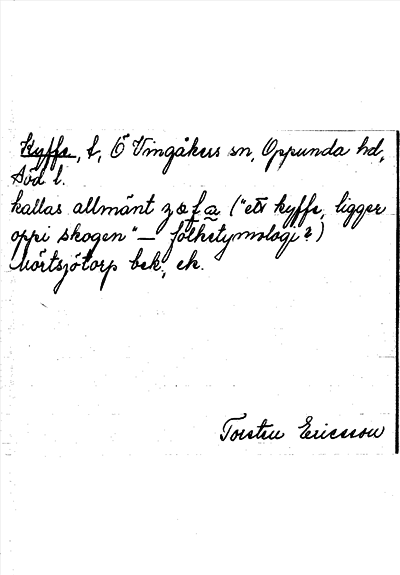 Kyffe, t, Ö Vingåkers sn, Oppunda hd,
Söd l.
kallas allmänt ("ett kyffe, ligger
oppi skogen" — folketymologi?)
Mörtsjötorp bek, ek.
Torsten Ericsson